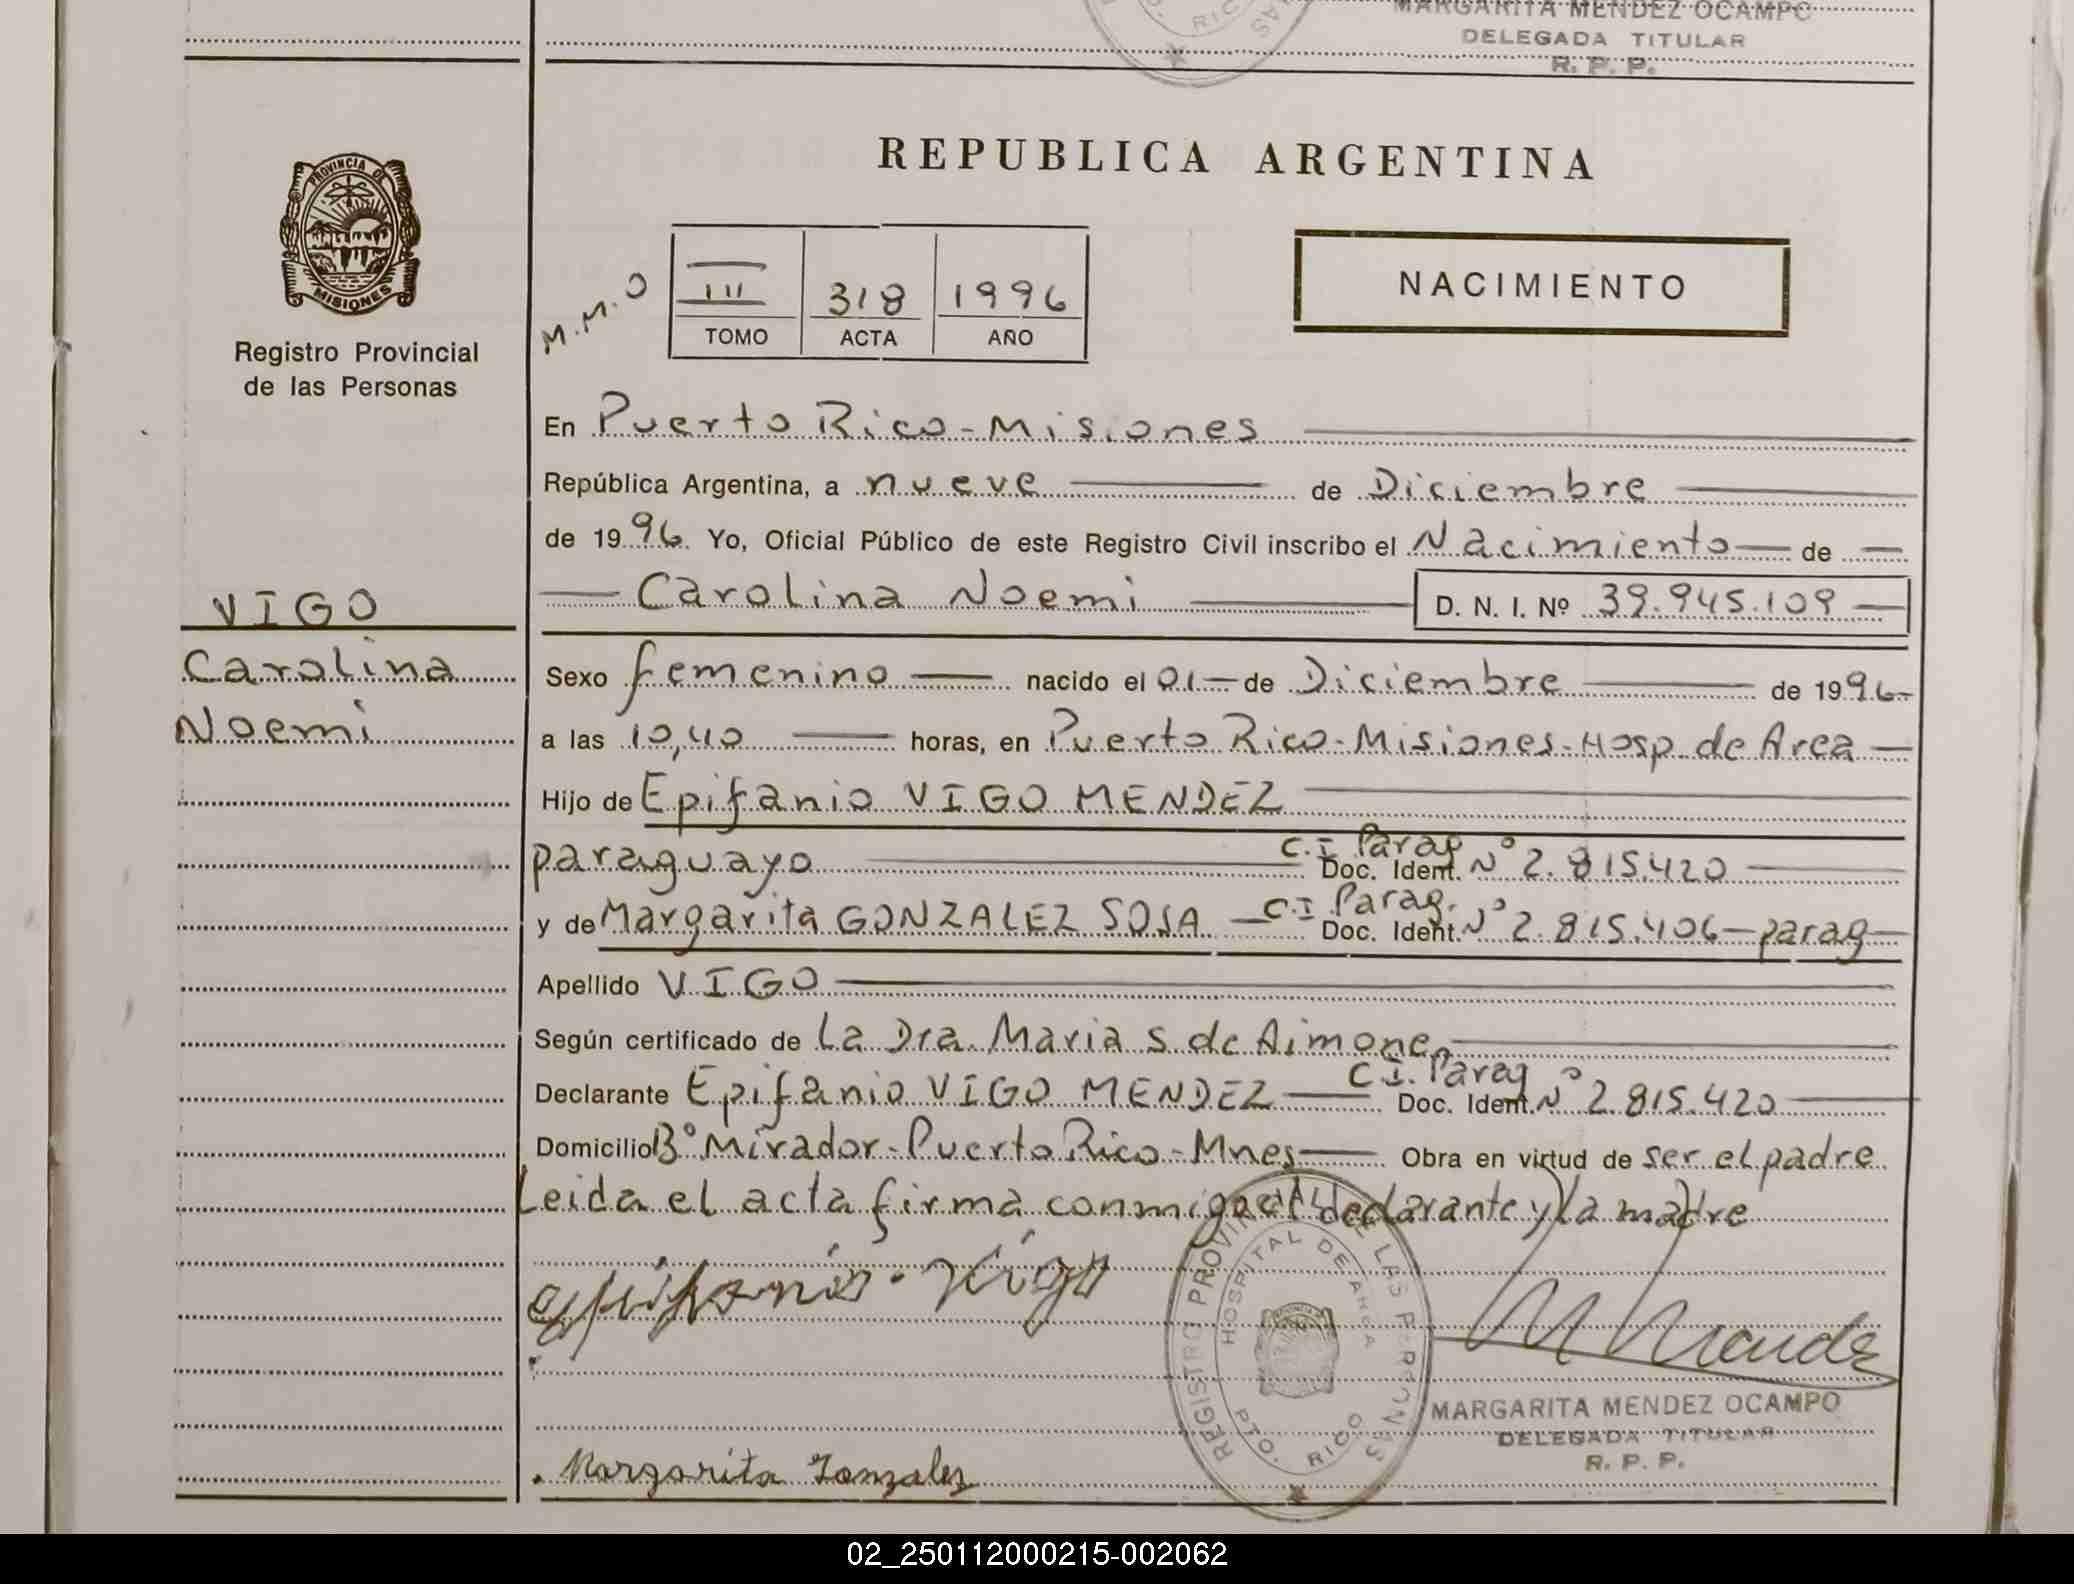 MARGARITA MENDEZ OCAMPO
DELEGADA TITULAR
R. P. P.
RIC
PROVINCIA DE
MISIONES
Registro Provincial
de las Personas
REPUBLICA ARGENTINA
M.M.O
III 318 1996
TOMO ACTA AÑO
NACIMIENTO
En Puerto Rico - Misiones
República Argentina, a nueve de Diciembre
de 1996 Yo, Oficial Público de este Registro Civil inscribo el Nacimiento de
Carolina Noemi D. N. I. Nº 39.945.109
VIGO
Carolina
Noemi
Sexo femenino nacido el 01 de Diciembre de 1996
a las 10,40 horas, en Puerto Rico - Misiones - Hosp. de Area
Hijo de Epifanio VIGO MENDEZ
paraguayo C.I. Parag Doc. Ident. Nº 2.815.420
y de Margarita GONZALEZ SOSA C.I. Parag. Doc. Ident. Nº 2.815.406 - parag
Apellido VIGO
Según certificado de La Dra. Maria S de Aimone
Declarante Epifanio VIGO MENDEZ C.I. Parag Doc. Ident. Nº 2.815.420
Domicilio Bº Mirador - Puerto Rico - Mnes Obra en virtud de ser el padre
Leida el acta firma conmigo el declarante y la madre
epifanio. Vigo
REGISTRO PROVINCIAL DE LAS PERSONAS
HOSPITAL DE AREA
PTO. RICO
M Mendez
MARGARITA MENDEZ OCAMPO
DELEGADA TITULAR
R. P. P.
Margarita Gonzalez
02_250112000215-002062